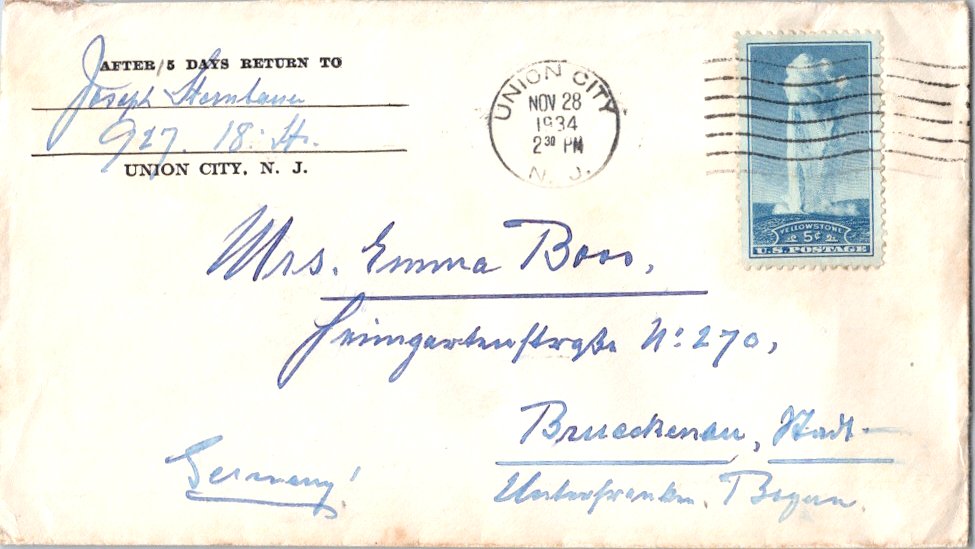 AFTER 5 DAYS RETURN TO
Joseph Sternbauer
927. 18. St.
UNION CITY, N. J.
UNION CITY
NOV 28
1934
2 30 PM
N. J.
YELLOWSTONE
5¢
U.S. POSTAGE
Mrs. Emma Boos,
Heimgartenstraße No: 270,
Brueckenau, Stadt-
Germany!
Unterfranken. Bayern.